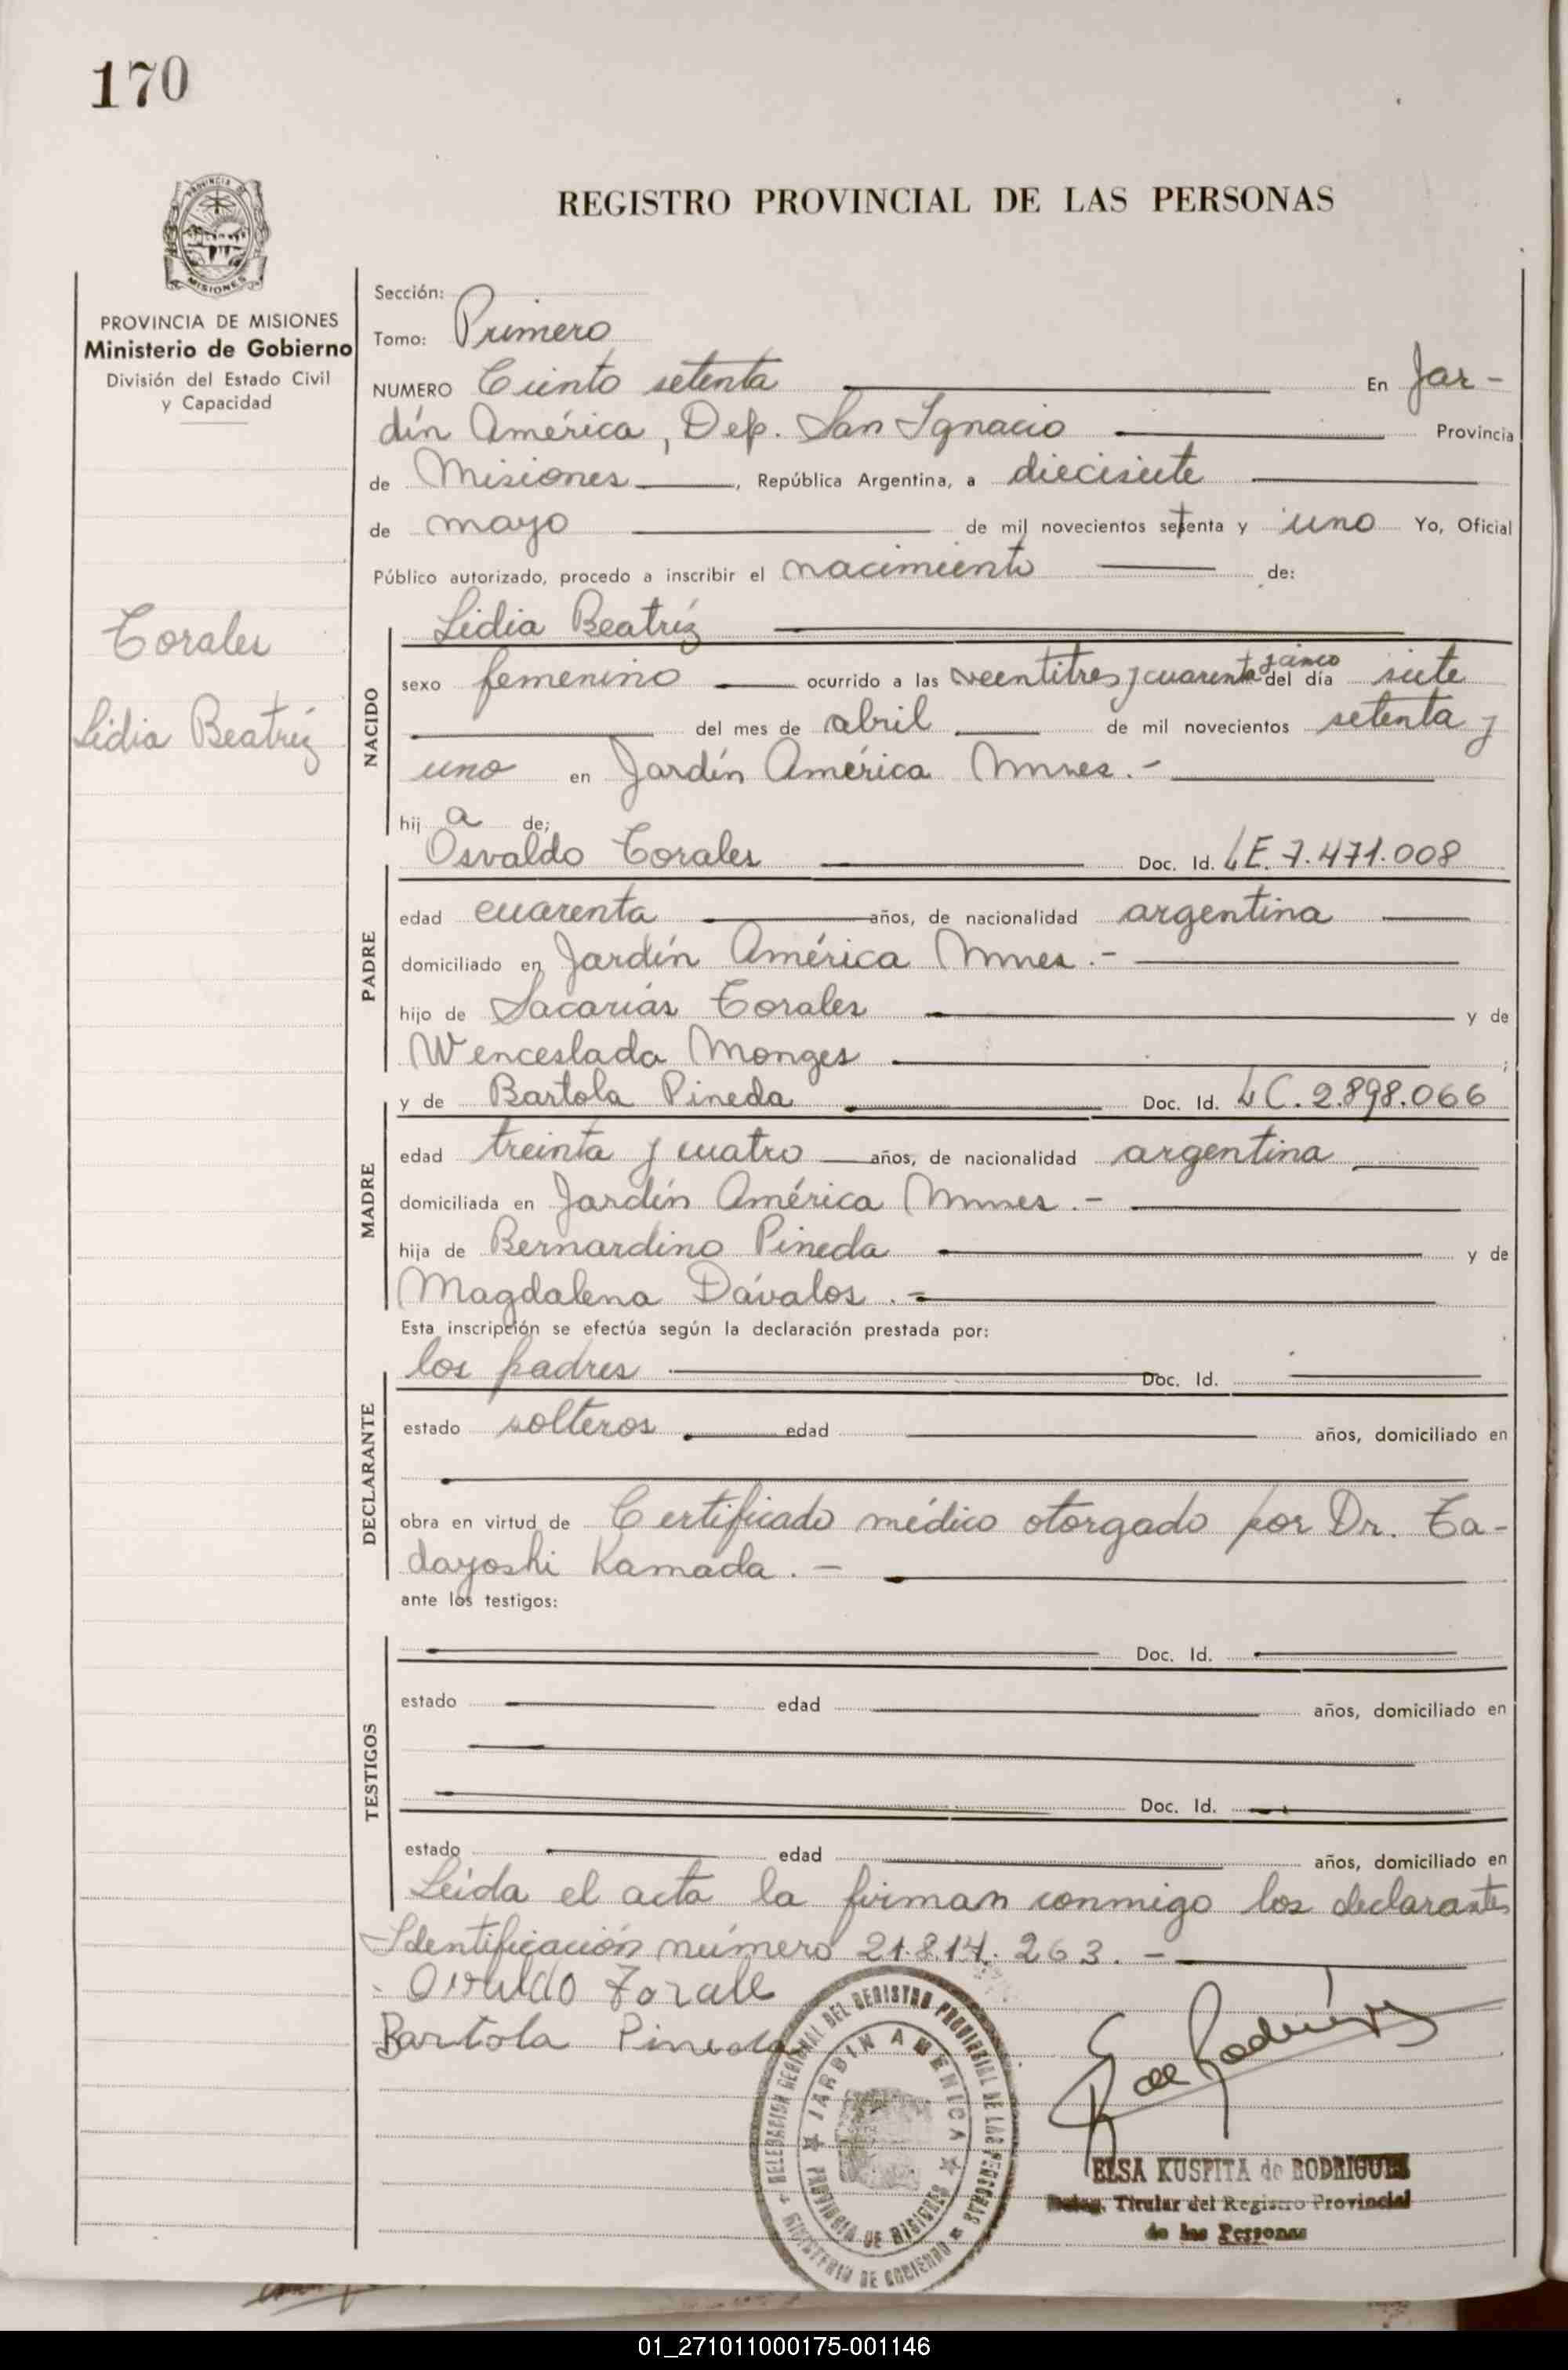 170
REGISTRO PROVINCIAL DE LAS PERSONAS
PROVINCIA DE
MISIONES
PROVINCIA DE MISIONES
Ministerio de Gobierno
División del Estado Civil
y Capacidad
Torales
Lidia Beatríz
Sección:
Tomo: Primero
NUMERO Ciento setenta En Jar-
dín América, Dep. San Ignacio Provincia
de Misiones, República Argentina, a diecisiete
de mayo de mil novecientos setenta y uno Yo, Oficial
Público autorizado, procedo a inscribir el nacimiento de:
NACIDO
Lidia Beatríz
sexo femenino ocurrido a las veentitres y cuarenta y cinco del día siete
del mes de abril de mil novecientos setenta y
uno en Jardín América Mnes.-
hij a de;
PADRE
Osvaldo Torales Doc. Id. LE. 7.471.008
edad cuarenta años, de nacionalidad argentina
domiciliado en Jardín América Mnes.-
hijo de Sacarías Torales y de
Wenceslada Monges ;
MADRE
y de Bartola Pineda Doc. Id. LC. 2.898.066
edad treinta y cuatro años, de nacionalidad argentina
domiciliada en Jardín América Mnes.-
hija de Bernardino Pineda y de
Magdalena Dávalos.-
Esta inscripción se efectúa según la declaración prestada por:
DECLARANTE
los padres Doc. Id.
estado solteros edad años, domiciliado en
obra en virtud de Certificado médico otorgado por Dr. Ta-
dayoshi Kamada.-
ante los testigos:
TESTIGOS
Doc. Id.
estado edad años, domiciliado en
Doc. Id.
estado edad años, domiciliado en
Leída el acta la firman conmigo los declarantes
Identificación número 21.814.263.-
Osvaldo Torale
Bartola Pineda
DELEGACION REGIONAL DEL REGISTRO PROVINCIAL DE LAS PERSONAS
MINISTERIO DE GOBIERNO
JARDIN AMERICA
PROVINCIA DE MISIONES
E de Rodríguez
ELSA KUSPITA de RODRIGUEZ
Deleg. Titular del Registro Provincial
de las Personas
01_271011000175-001146